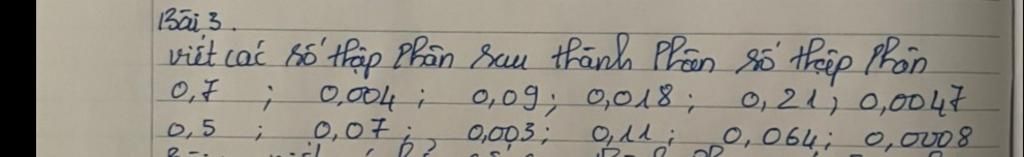 Bài 3.
viết các số thập phân sau thành phân số thập phân
0,7 ; 0,004 ; 0,09 ; 0,018 ; 0,21 ; 0,0047
0,5 ; 0,07 ; 0,003 ; 0,11 ; 0,064 ; 0,0008